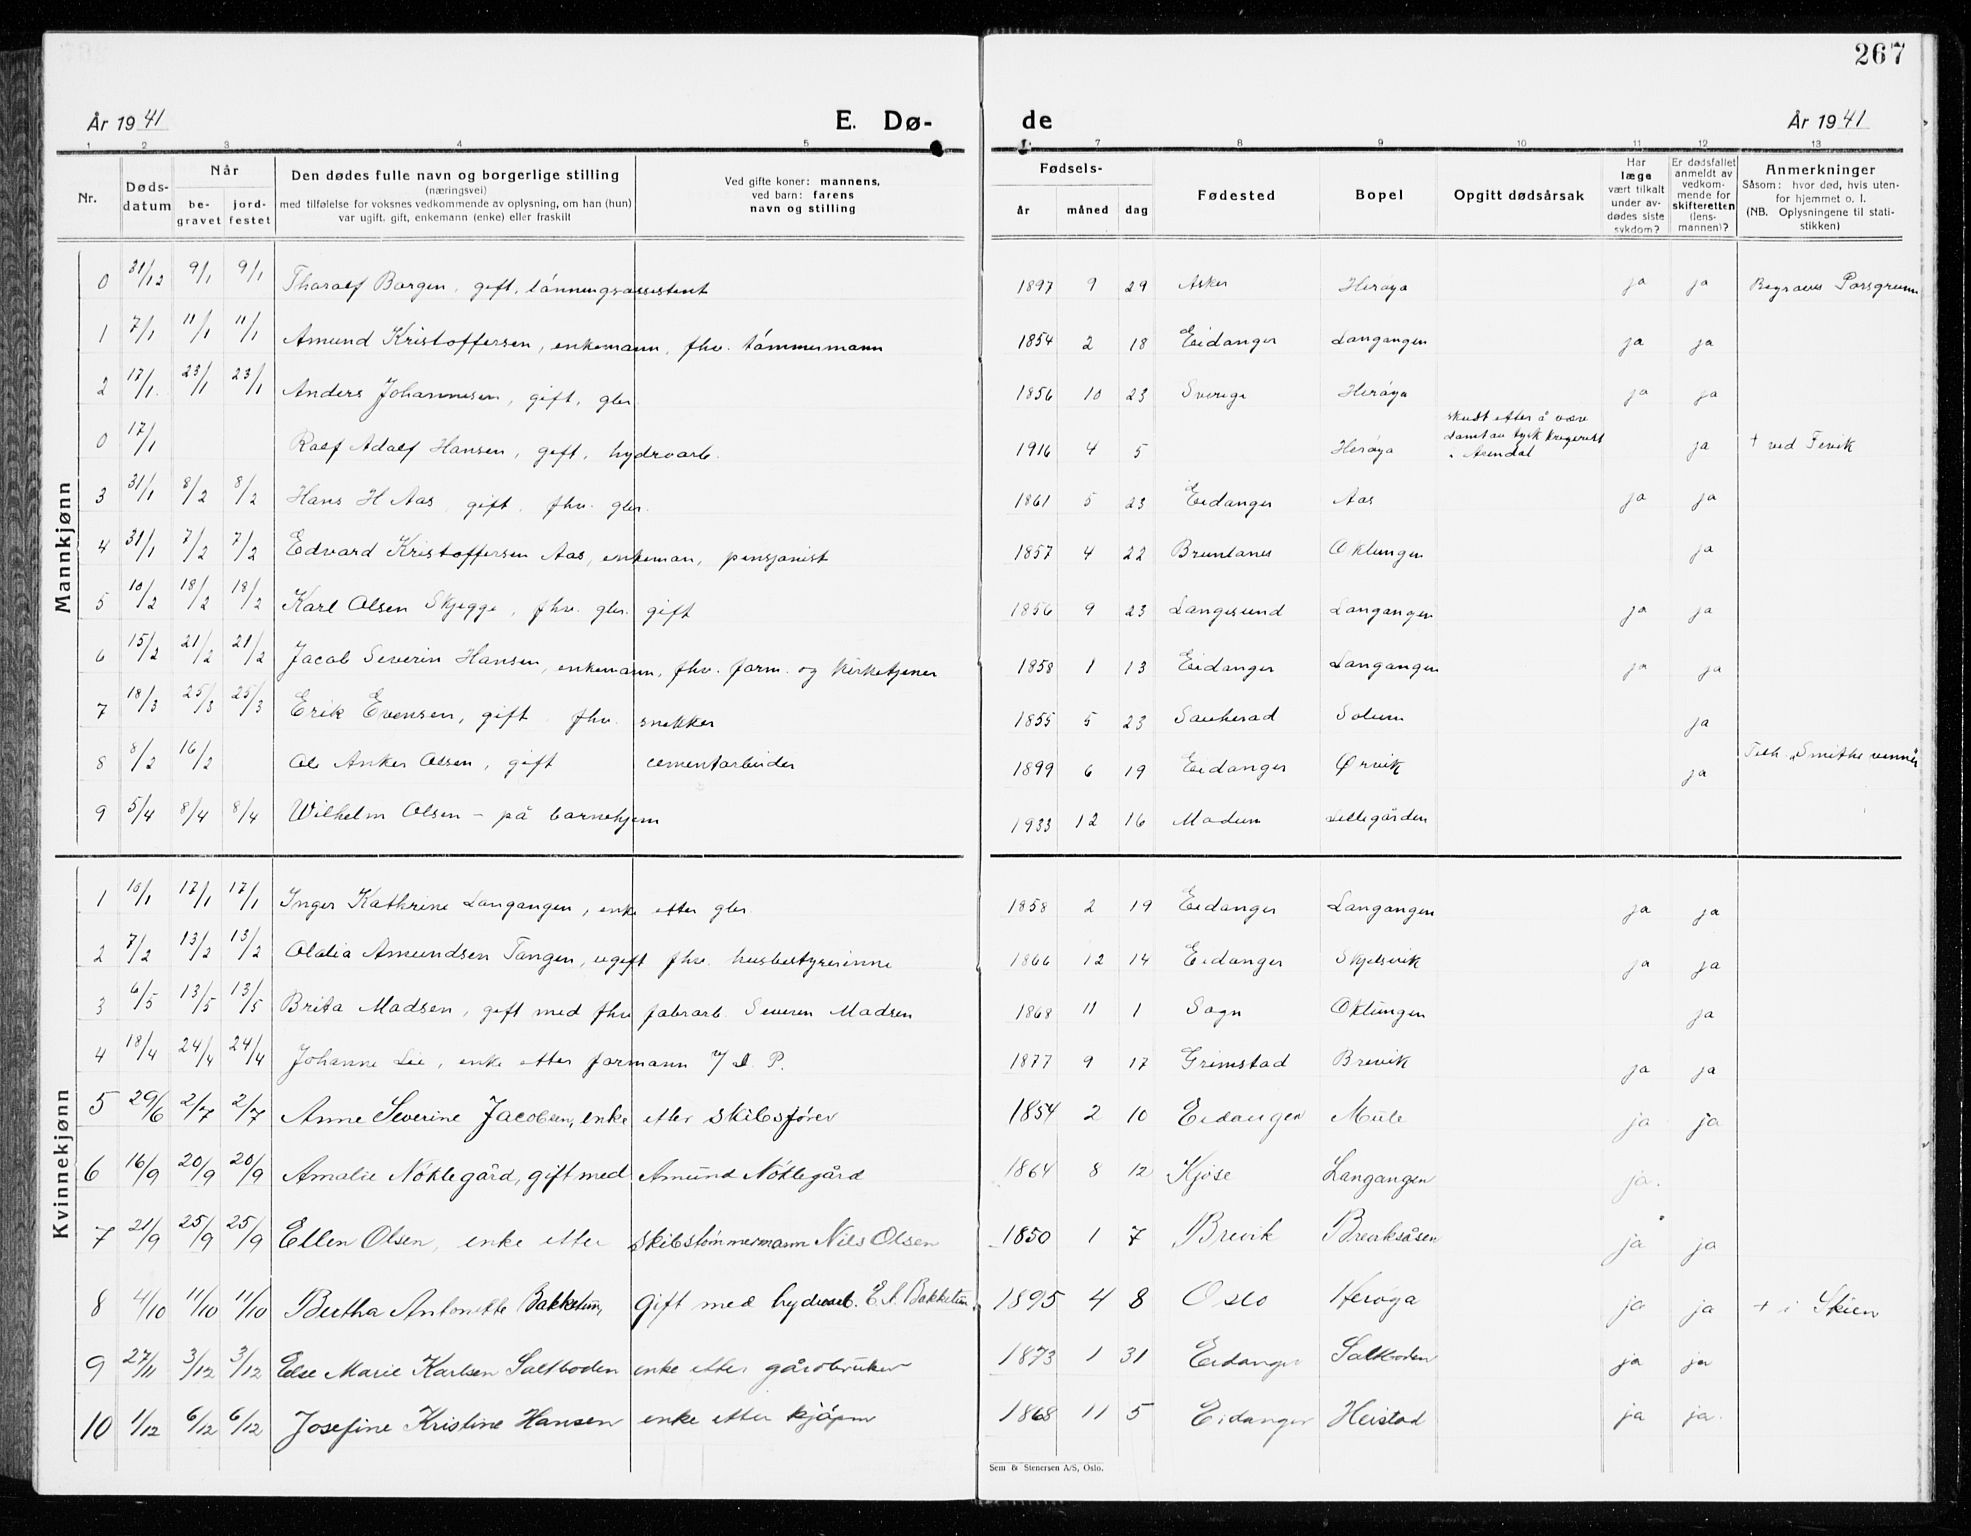 267
År 1941 E. Dø- de År 1941
1 2 3 4 5 7 8 9 10 11 12 13
Nr.
Døds-
datum
Når
be-
gravet
jord-
festet
Den dødes fulle navn og borgerlige stilling
(næringsvei)
med tilføielse for voksnes vedkommende av oplysning, om han (hun)
var ugift, gift, enkemann (enke) eller fraskilt
Ved gifte koner: mannens,
ved barn: farens
navn og stilling
Fødsels-
år måned dag
Fødested
Bopel
Opgitt dødsårsak
Har
læge
vært tilkalt
under av-
dødes siste
sykdom?
Er dødsfallet
anmeldt av
vedkom-
mende for
skifteretten
(lens-
mannen)?
Anmerkninger
Såsom: hvor død, hvis uten-
for hjemmet o. l.
(NB. Oplysningene til stati-
stikken)
Mannkjønn
0 31/12 9/1 9/1 Tharalf Borgen, gift, lønningsassistent 1897 9 29 Asker Herøya ja ja Begraves Porsgrunn
1 7/1 11/1 11/1 Amund Kristoffersen, enkemann, fhv. tømmermann 1854 2 18 Eidanger Langangen ja ja
2 17/1 23/1 23/1 Anders Johannesen, gift, gbr. 1856 10 23 Sverige Herøya ja ja
0 17/1 Ralf Adolf Hansen, gift, hydroarb. 1916 4 5 Herøya skutt etter å være dømt av tysk krigsrett i Arendal ja † ved Fevik
3 31/1 8/2 8/2 Hans H Aas, gift, fhv. gbr. 1861 5 23 Eidanger Aas ja ja
4 31/1 7/2 7/2 Edvard Kristoffersen Aas, enkeman, pensjonist 1857 4 22 Brunlanes Oklungen ja
5 10/2 18/2 18/2 Karl Olsen Skjegge, fhv. gbr. gift 1856 9 23 Langesund Langangen ja ja
6 15/2 21/2 21/2 Jacob Severin Hansen, enkemann, fhv. form. og kirketjener 1858 1 13 Eidanger Langangen ja ja
7 18/3 25/3 25/3 Erik Evensen, gift fhv. snekker 1855 5 23 Sauherad Solum ja
8 8/2 16/2 Ole Anker Olsen, gift cementarbeider 1899 6 19 Eidanger Ørvik ja Tilh. Smiths venner
9 5/4 8/4 8/4 Wilhelm Olsen - på barnehjem 1933 12 16 Modum Lillegården
Kvinnekjønn
1 10/1 17/1 17/1 Inger Kathrine Langangen, enke etter gbr. 1858 2 19 Eidanger Langangen ja ja
2 7/2 13/2 13/2 Olalia Amundsen Tangen, ugift fhv. husbestyrerinne 1866 12 14 Eidanger Skjelsvik ja ja
3 6/5 13/5 13/5 Brita Madsen, gift med fhv fabrarb. Severin Madsen 1868 11 1 Sogn Oklungen ja
4 18/4 24/4 24/4 Johanne Lie, enke etter formann v/ D. P. 1877 9 17 Grimstad Brevik ja ja
5 29/6 2/7 2/7 Anne Severine Jacobsen, enke etter skibsfører 1854 2 10 Eidanger Mule ja ja
6 16/9 20/9 20/9 Amalie Nøklegård, gift med Amund Nøklegård 1864 8 12 Kjose Langangen ja.
7 21/9 25/9 25/9 Ellen Olsen, enke etter skibstømmermann Nils Olsen 1850 1 7 Brevik Breviksåsen ja ja
8 4/10 11/10 11/10 Bertha Antonette Bakketun, gift med hydroarb. E. A. Bakketun 1895 4 8 Oslo Herøya ja ja + i Skien
9 27/11 3/12 3/12 Else Marie Karlsen Saltboden enke etter gårdbruker 1873 1 31 Eidanger Saltboden ja ja
10 1/12 6/12 6/12 Josefine Kristine Hansen enke etter kjøpm 1868 11 5 Eidanger Heistad ja ja.
Sem & Stenersen A/S, Oslo.